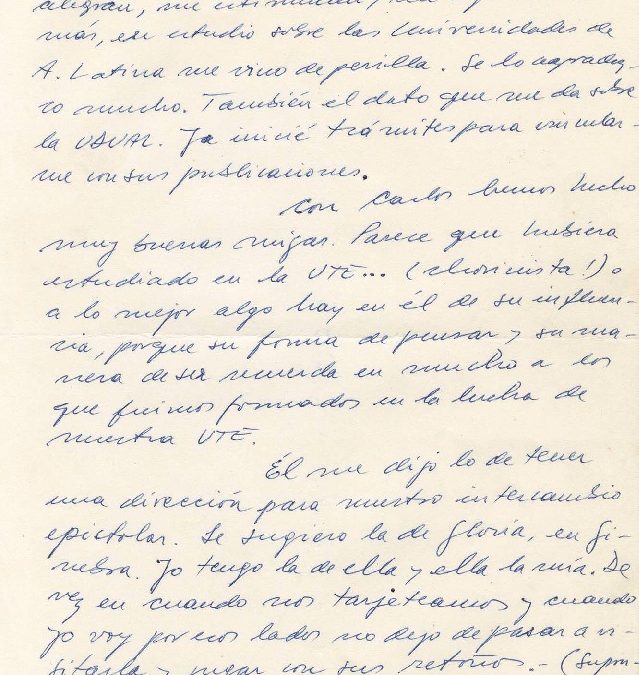 alegran, me estimulan, 
más, su estudio sobre las Universidades de
A. Latina me vino de perilla. Se lo agradez-
co mucho. También el dato que me da sobre
la UDUAL. Ya inicié trámites para vincular-
me con sus publicaciones.
Con Carlos hemos hecho
muy buenas migas. Parece que hubiera
estudiado en la UTE... (chovinista!) o
a lo mejor algo hay en él de su influen-
cia, porque su forma de pensar y su ma-
nera de ser recuerda en mucho a los
que fuimos formados en la lucha de
nuestra UTE.
Él me dijo lo de tener
una dirección para nuestro intercambio
epistolar. Le sugiero la de Gloria, en Gi-
nebra. Yo tengo la de ella y ella la mía. De
vez en cuando nos tarjeteamos y cuando
yo voy por esos lados no dejo de pasar a vi-
sitarla y jugar con sus retoños.- (Supon-